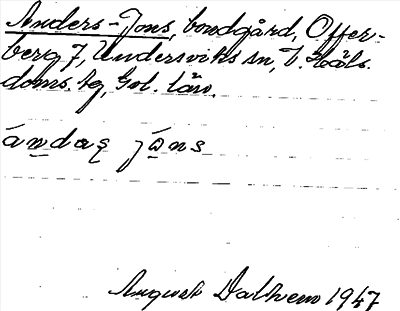 Anders-Jons, bondgård, Offer-
berg 7, Undersviks sn, V. Häls.
doms. hg, Gvl. län.
ándas jåns
August Dalhem 1947